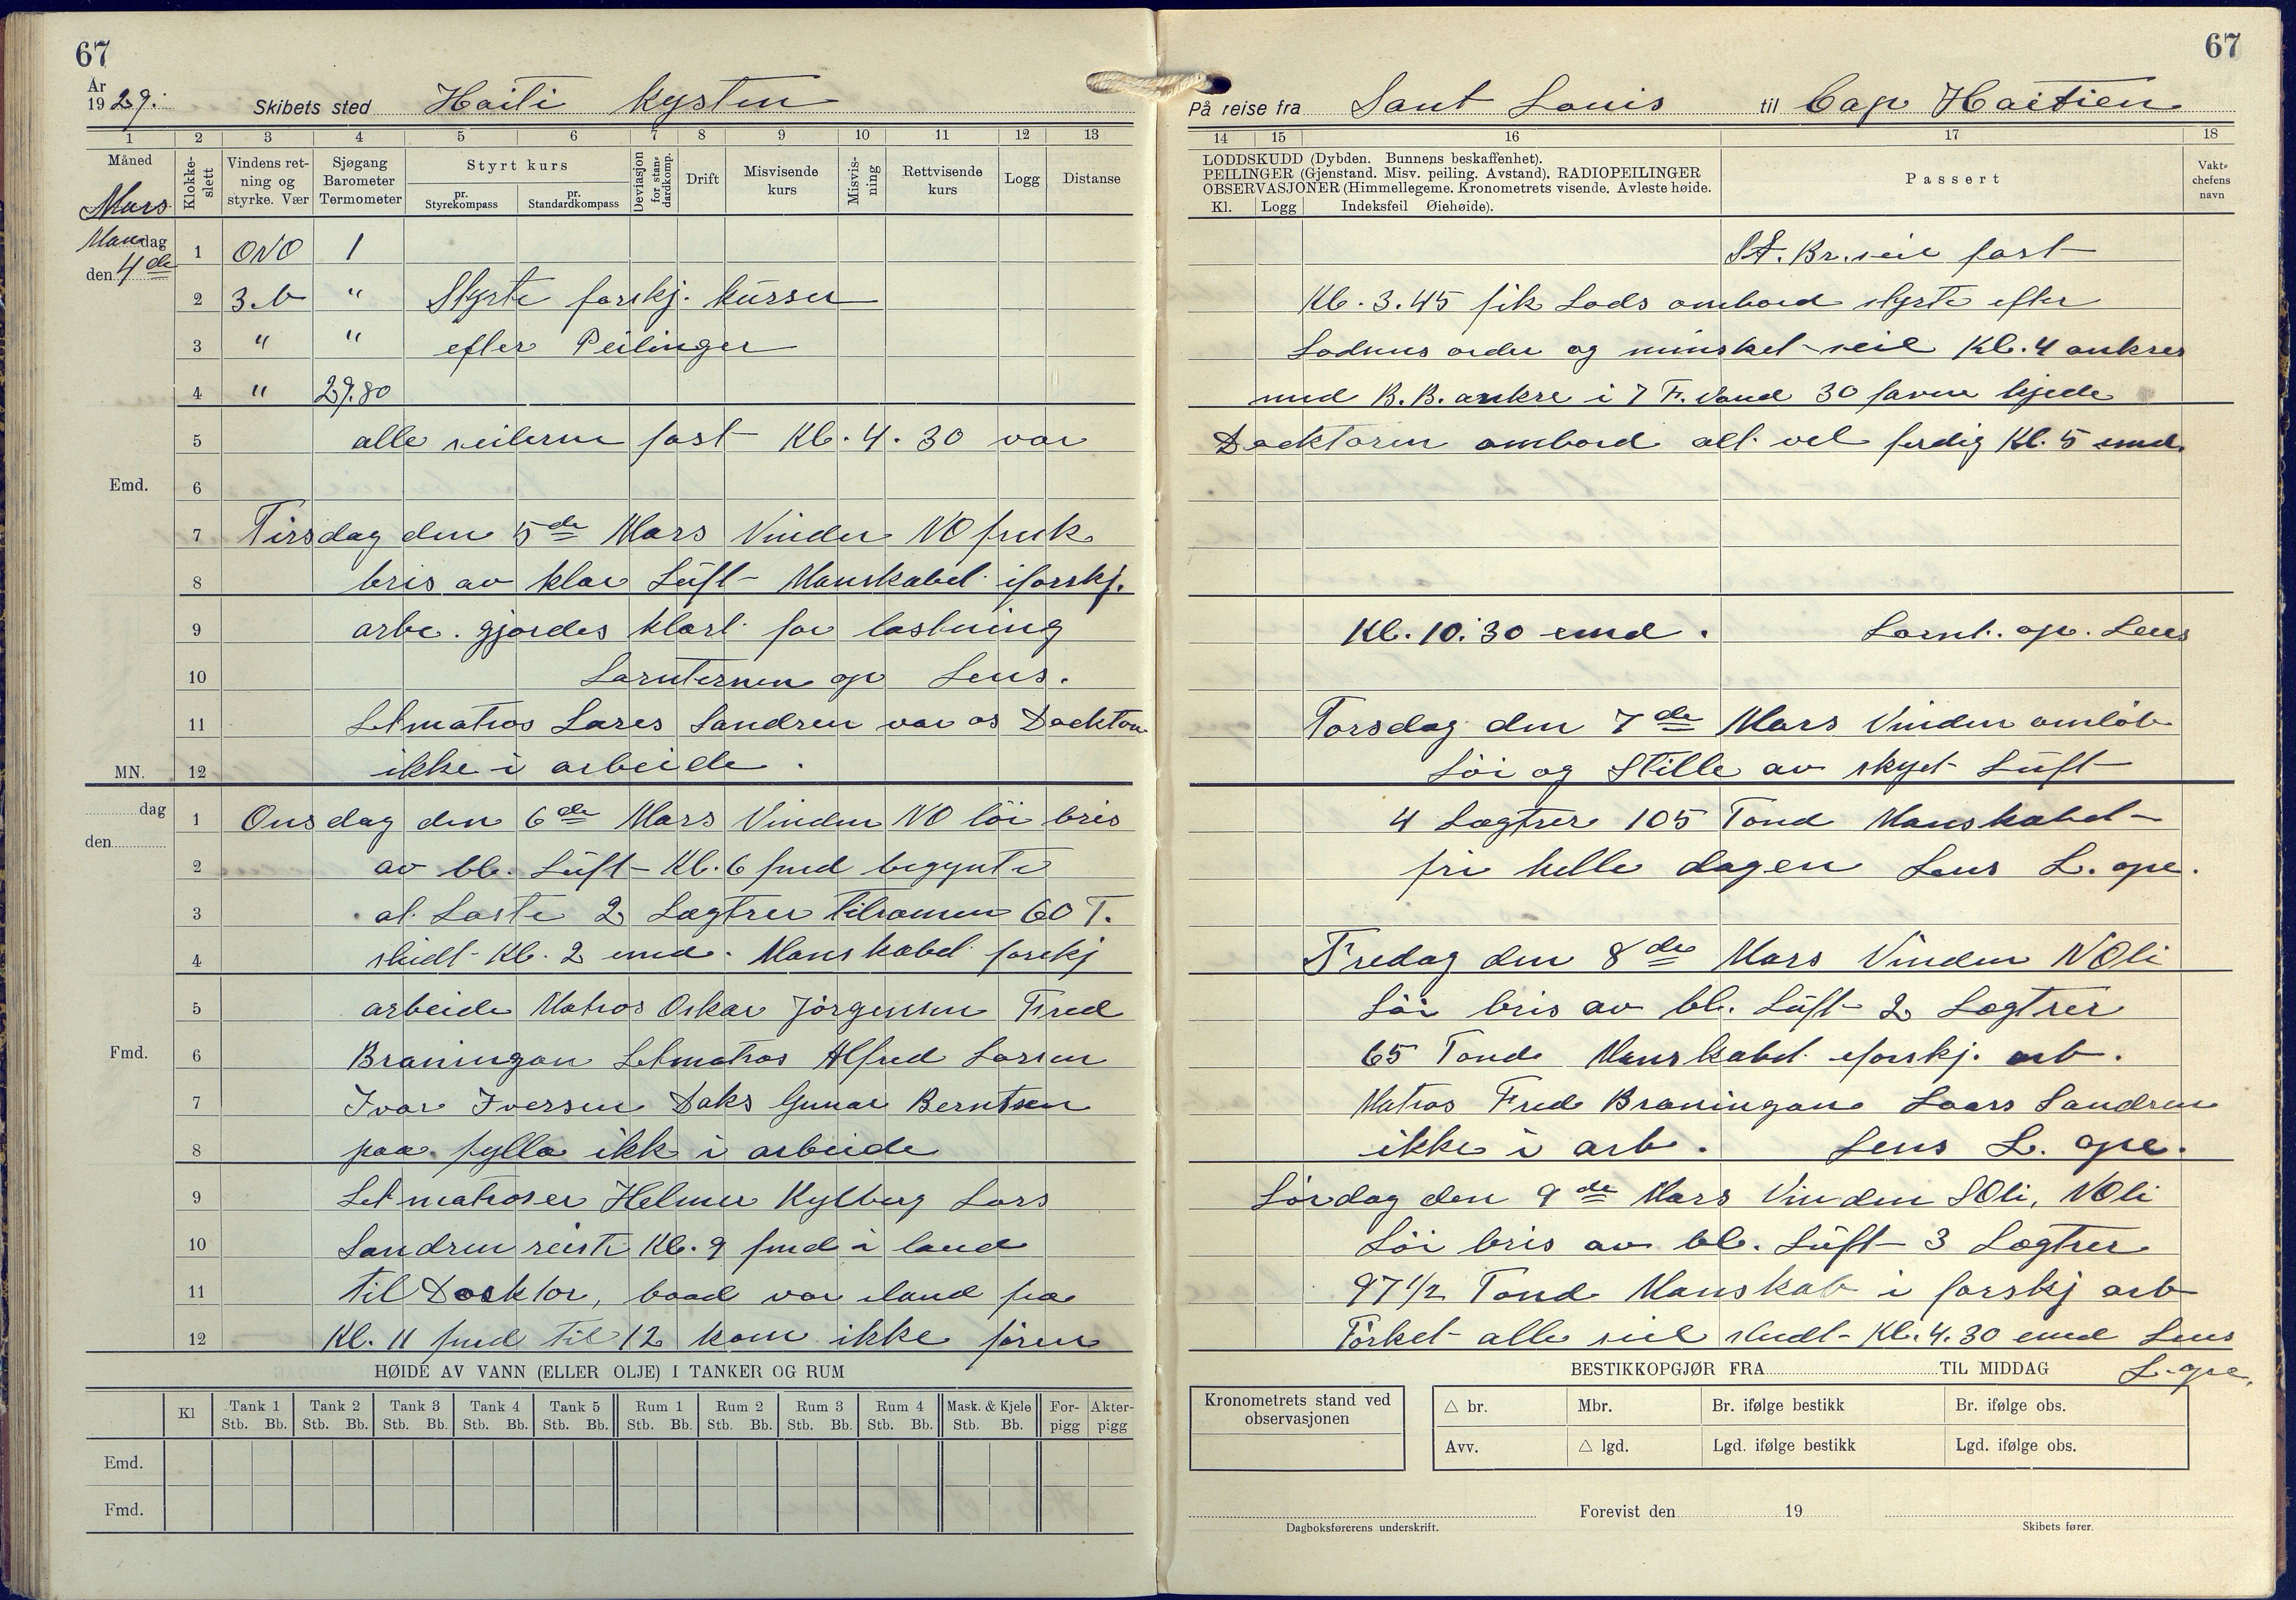 67
År 1929.
Skibets sted Haiti kysten
1 2 3 4 5 6 7 8 9 10 11 12 13
Måned
Mars
Klokke-slett
Vindens ret-ning og styrke. Vær
Sjøgang Barometer Termometer
Styrt kurs
pr. Styrekompass
pr. Standardkompass
Deviasjon for stan-dardkomp.
Drift
Misvisende kurs
Misvis-ning
Rettvisende kurs
Logg
Distanse
Mandag den 4de
1 ONO 1
2 3.b " Styrte forskj. kurser
3 " " efter Peilinger
4 " 29.80
5 alle seilerne fast Kl. 4.30 var
Emd. 6
7 Tirsdag den 5de Mars Vinden NO frisk
8 bris av klar Luft Manskabet iforskj.
9 arbe. gjordes klart for lastning
10 Lanternen op Lens.
11 Letmatros Lares Sandren var os Docktor
MN. 12 ikke i arbeide.
dag den
1 Onsdag den 6de Mars Vinden NO löi bris
2 av bl. Luft Kl. 6 fmd begynte
3 at Laste 2 Lægtrer tilsamen 60 T.
4 sludt Kl. 2 emd. Manskabet forskj
5 arbeide Matros Oskar Jörgensen Fred
Fmd. 6 Braningan Letmatros Alfred Larsen
7 Ivar Iversen Daks Gunar Berntsen
8 paa fylla ikk i arbeide
9 Letmatroser Helmer Kylberg Lars
10 Sandren reiste Kl. 9 fmd i land
11 til Docktor, baad var iland fra
12 Kl. 11 fmd til 12 kom ikke fören
HØIDE AV VANN (ELLER OLJE) I TANKER OG RUM
Kl
Tank 1 Tank 2 Tank 3 Tank 4 Tank 5 Rum 1 Rum 2 Rum 3 Rum 4 Mask. & Kjele For-pigg Akter-pigg
Stb. Bb. Stb. Bb. Stb. Bb. Stb. Bb. Stb. Bb. Stb. Bb. Stb. Bb. Stb. Bb. Stb. Bb. Stb. Bb.
Emd.
Fmd.
67
På reise fra Sant Louis til Cap Haitien
14 15 16 17 18
LODDSKUDD (Dybden. Bunnens beskaffenhet).
PEILINGER (Gjenstand. Misv. peiling. Avstand). RADIOPEILINGER
OBSERVASJONER (Himmellegeme. Kronometrets visende. Avleste høide.
Kl. Logg Indeksfeil Øiehøide).
Passert
Vakt-chefens navn
St. Br. seil fast
Kl. 3.45 fik Lods ombord styrte efter
Lodsens order og minsket seil Kl. 4 ankres
med B.B. ankre i 7 F. Vand 30 favne kjede
Docktoren ombord alt vel ferdig Kl. 5 emd.
Kl. 10.30 emd. Lant. op. Lens
Torsdag den 7de Mars Vinden omlöb
Löi og Stille av skyet Luft
4 Lægtrer 105 Tond Manskabet
fri helle dagen Lens L. ope.
Fredag den 8de Mars Vinden NOli
Löi bris av bl. Luft 2 Lægtrer
65 Tond Manskabet iforskj. arb.
Matros Fred Braningan Laars Sandren
ikke i arb. Lens L. ope.
Lördag den 9de Mars Vinden SOli, NOli
Löi bris av bl. Luft 3 Lægtrer
97 1/2 Tond Manskab i forskj arb
Törket alle seil sludt Kl. 4.30 emd Lens
L. ope.
BESTIKKOPGJØR FRA TIL MIDDAG
Kronometrets stand ved observasjonen
△ br. Mbr. Br. ifølge bestikk Br. ifølge obs.
Avv. △ lgd. Lgd. ifølge bestikk Lgd. ifølge obs.
Forevist den 19
Dagboksførerens underskrift.
Skibets fører.